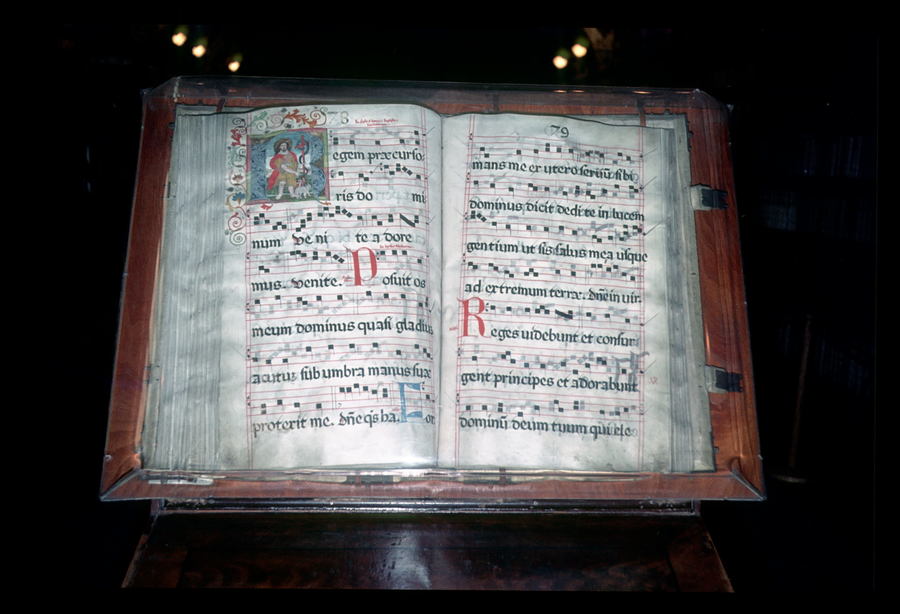 78
egem præcurso
ris do mi
num venite adore
mus. venite. Posuit os
meum dominus quasi gladiuʒ
acutuʒ sub umbra manus suæ
protexit me. dñe qs ba. For
79
mans me ex utero servũ sibi
dominus, dicit dedi te in lucem
gentium ut sis salus mea usque
ad extremum terræ. dñe in vir.
Reges videbunt et consur
gent principes et adorabunt
dominũ deum tuum qui ele